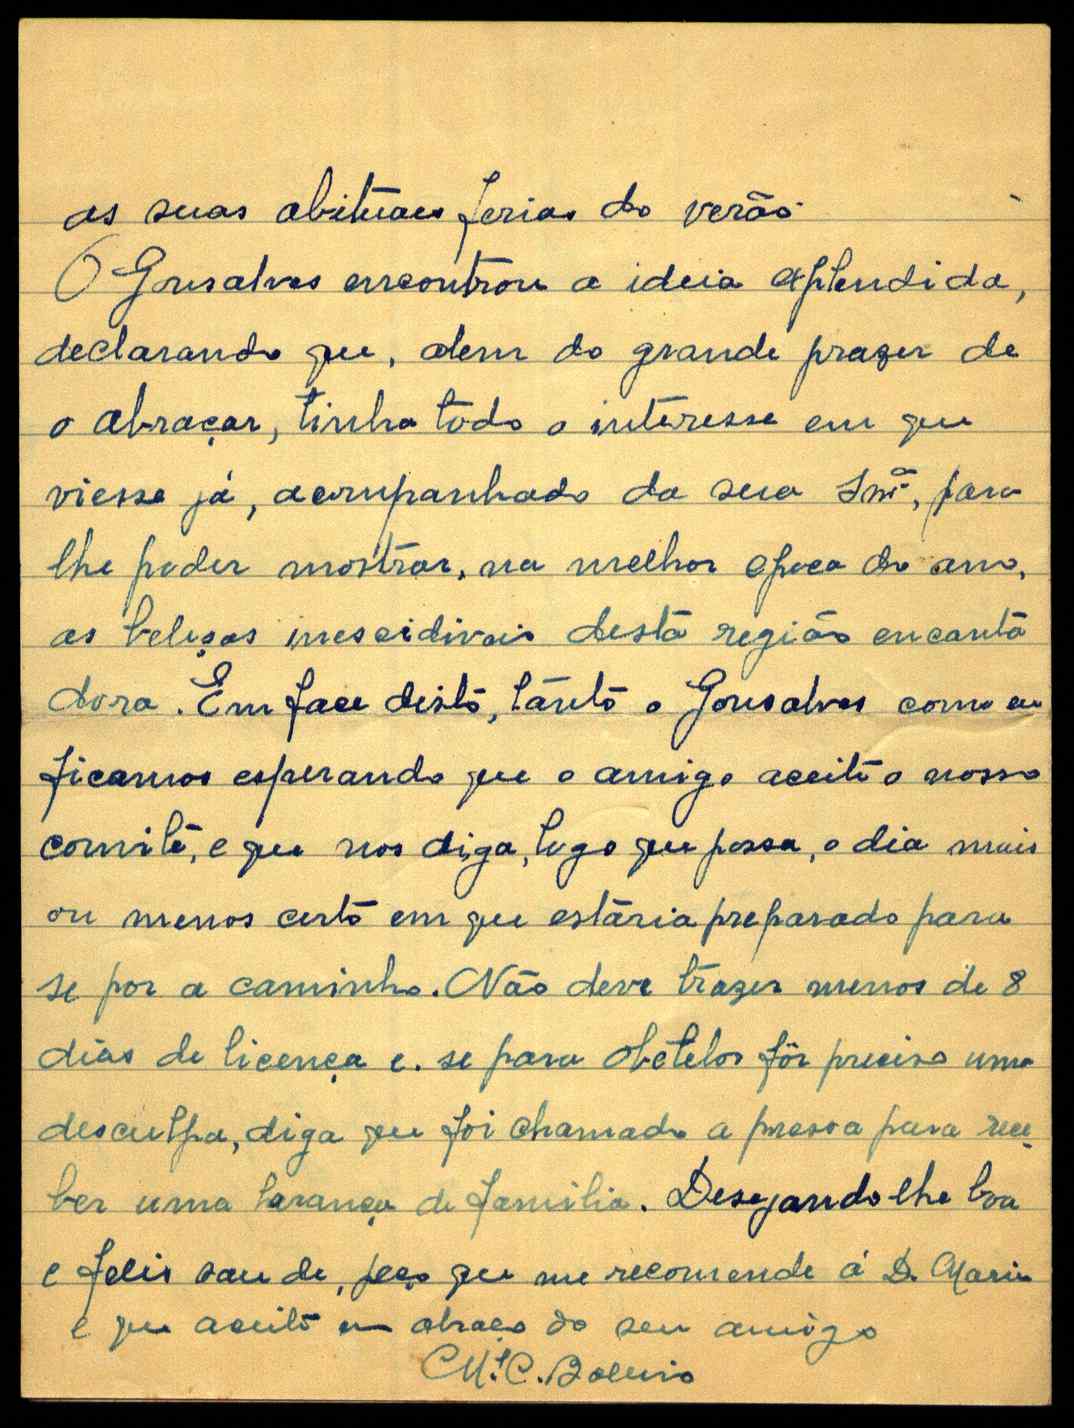 as suas abituaes ferias do verão.
O Gonsalves encontrou a ideia esplendida,
declarando que, alem do grande prazer de
o abraçar, tinha todo o interesse em que
viesse já, acompanhado da sua Snrª, para
lhe poder mostrar, na melhor epoca do ano,
as belezas inescidiveis desta região encanta
dora. Em face disto, tanto o Gonsalves como eu
ficamos esperando que o amigo aceite o nosso
convite, e que nos diga, logo que possa, o dia mais
ou menos certo em que estaria preparado para
se por a caminho. Não deve trazer menos de 8
dias de licença e. se para obctelos fôr preciso uma
desculpa, diga que foi chamado a pressa para rece
ber uma harança de familia. Desejando lhe boa
e felis saude, peço que me recomende á D. Maria
e que aceite um abraço do seu amigo